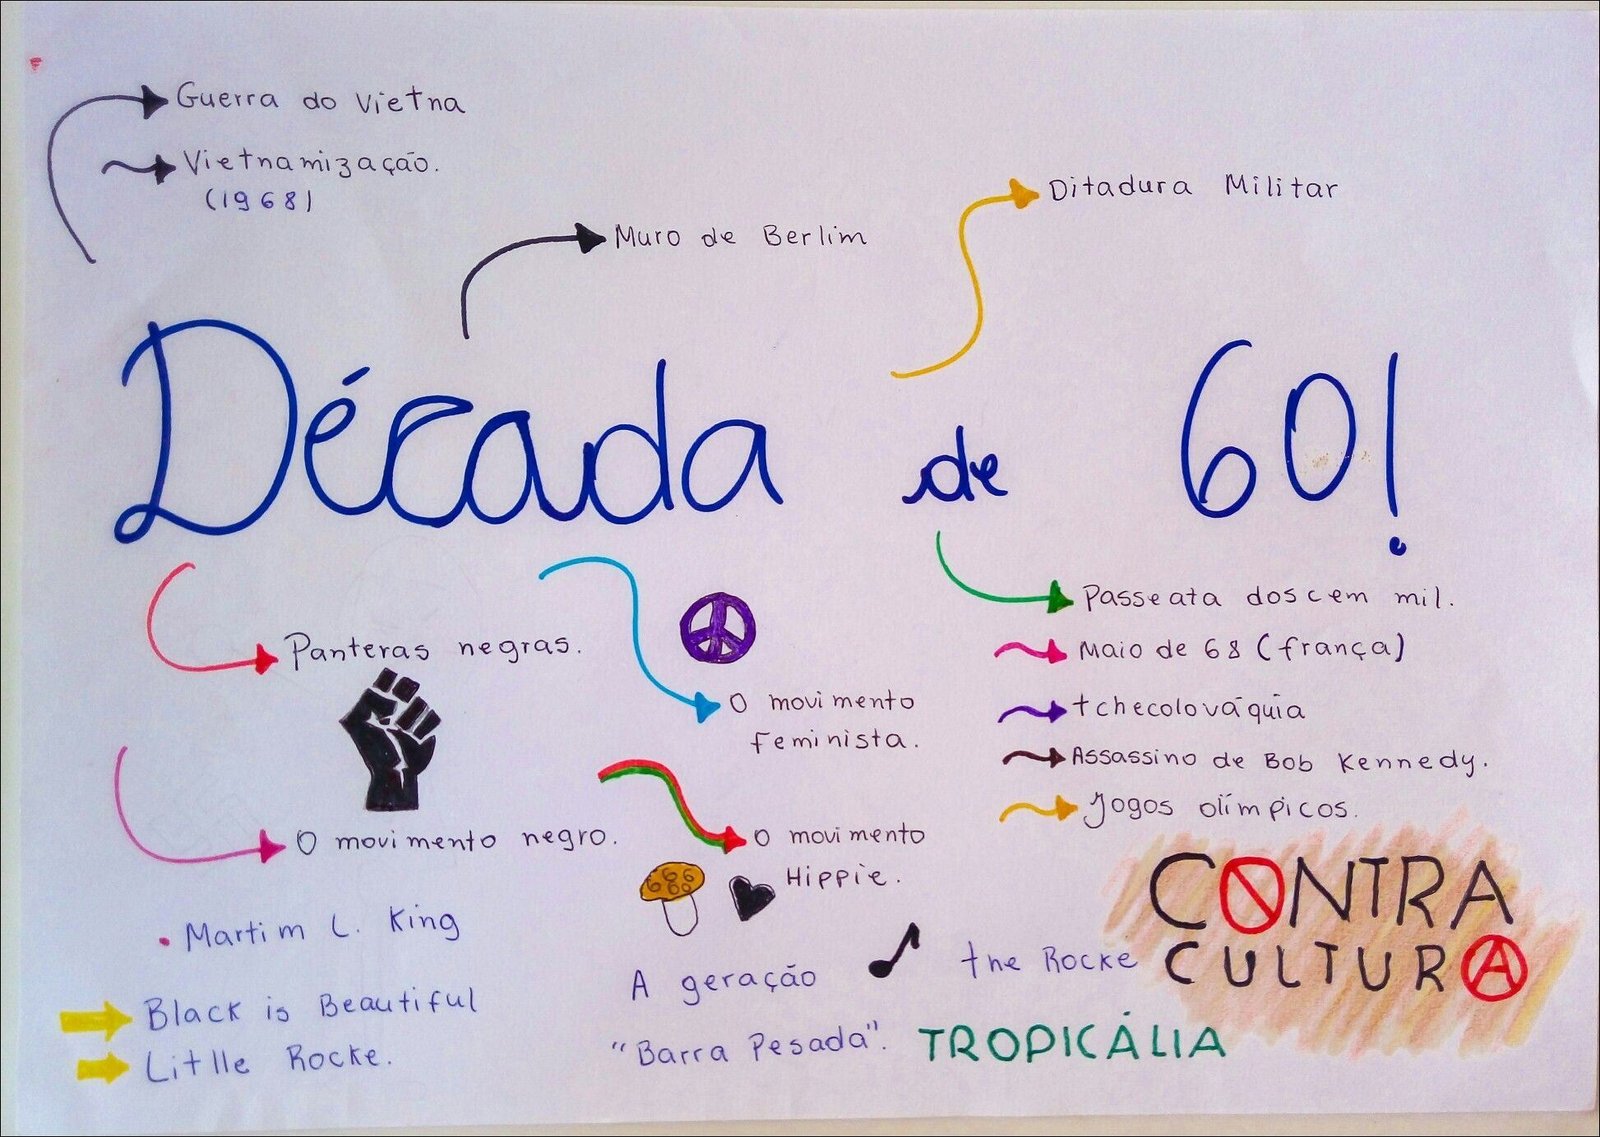 Guerra do Vietna
Vietnamização.
(1968)
Muro de Berlim
Ditadura Militar
Década de 60!
Panteras negras.
O movimento
feminista.
O movimento negro.
O movimento
Hippie.
Passeata dos cem mil.
Maio de 68 (frança)
tchecolováquia
Assassino de Bob Kennedy.
Jogos olímpicos.
CONTRA
CULTURA
• Martim L. King
Black is Beautiful
Litlle Rocke.
A geração
"Barra Pesada".
the Rocke
TROPICÁLIA